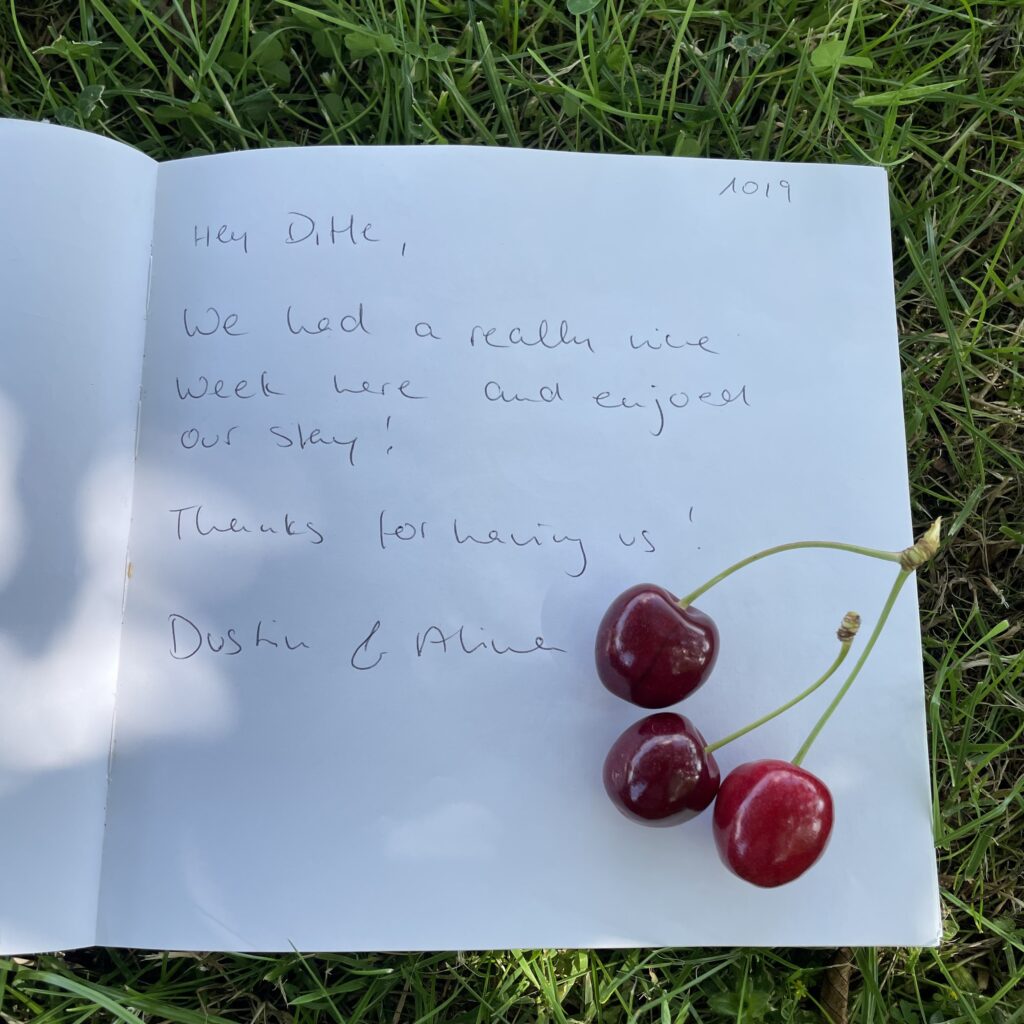 1019
Hey Ditte,
We had a really nice
week here and enjoed
our stay!
Thanks for having us!
Dustin & Alina